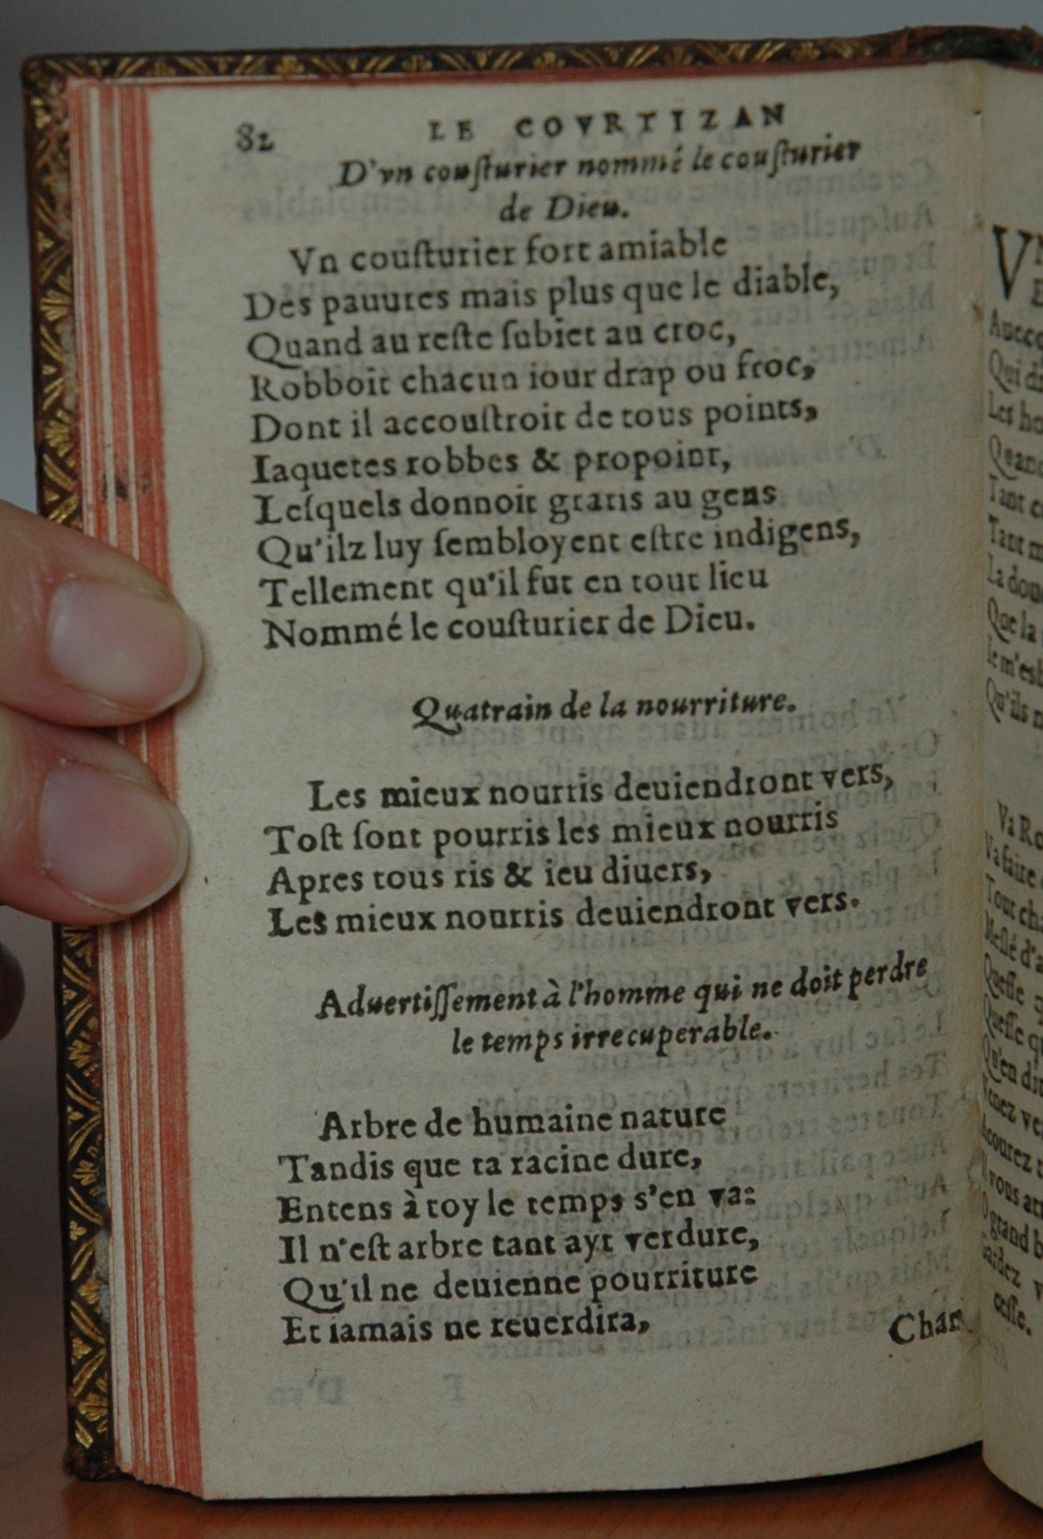 82 LE COVRTIZAN
D'vn couſturier nommé le couſturier
de Dieu.
Vn couſturier fort amiable
Des pauures mais plus que le diable,
Quand au reſte ſubiet au croc,
Robboit chacun iour drap ou froc,
Dont il accouſtroit de tous points,
Iaquetes robbes & propoint,
Leſquels donnoit gratis au gens
Qu'ilz luy ſembloyent eſtre indigens,
Tellement qu'il fut en tout lieu
Nommé le couſturier de Dieu.
Quatrain de la nourriture.
Les mieux nourris deuiendront vers,
Toſt ſont pourris les mieux nourris
Apres tous ris & ieu diuers,
Les mieux nourris deuiendront vers.
Aduertiſſement à l'homme qui ne doit perdre
le temps irrecuperable.
Arbre de humaine nature
Tandis que ta racine dure,
Entens à toy le temps s'en va:
Il n'eſt arbre tant ayt verdure,
Qu'il ne deuienne pourriture
Et iamais ne reuerdira,
Chan